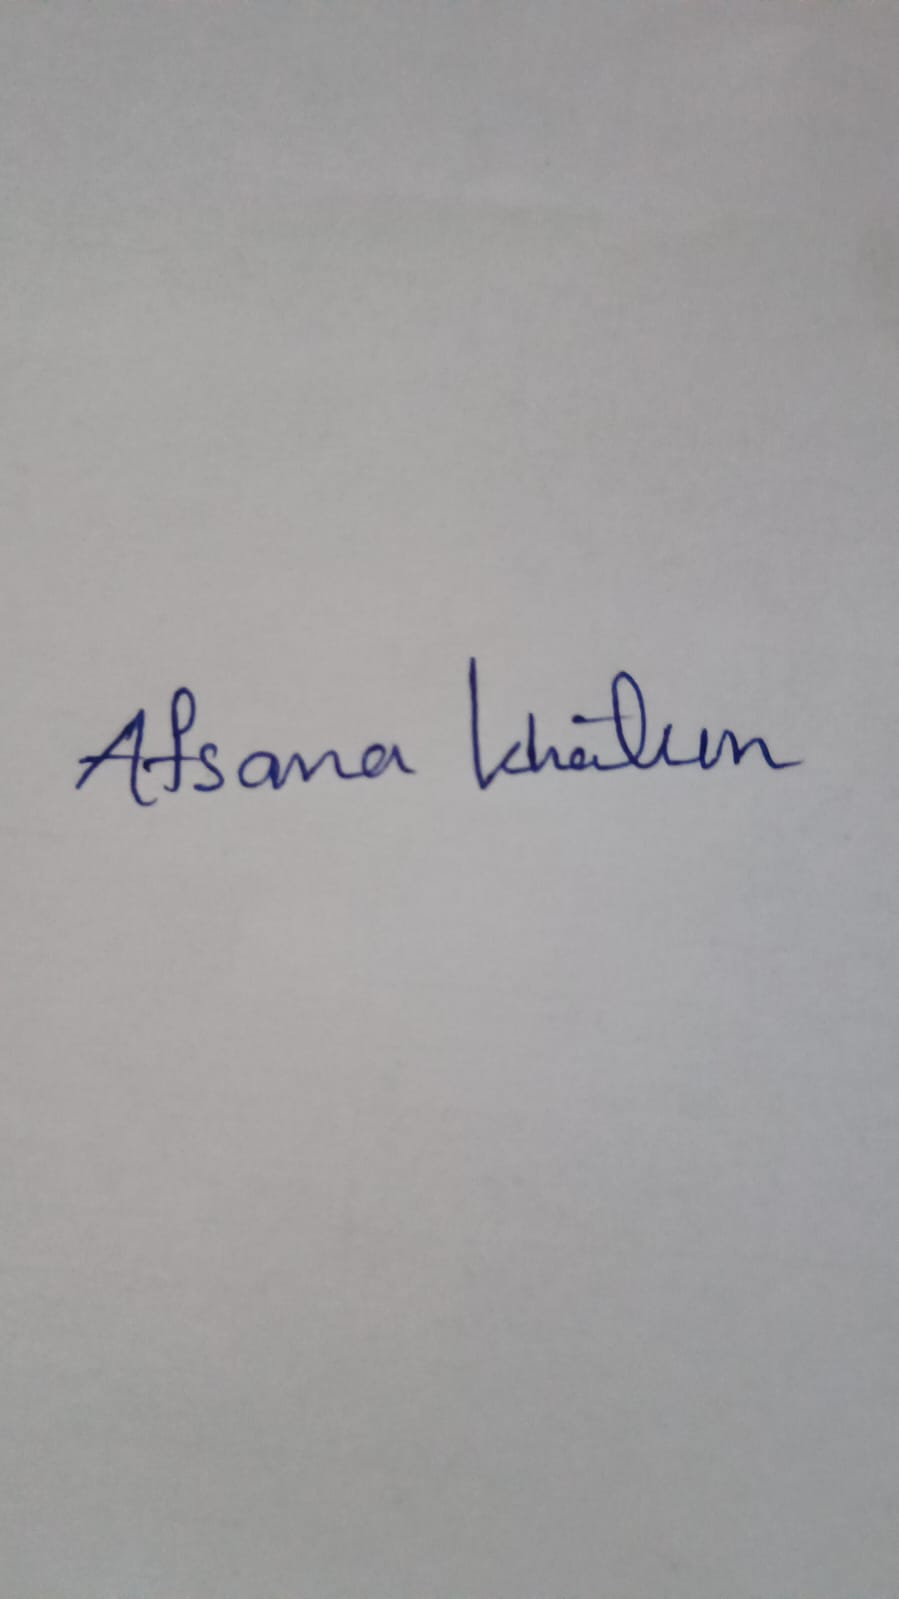 Afsana Khatun